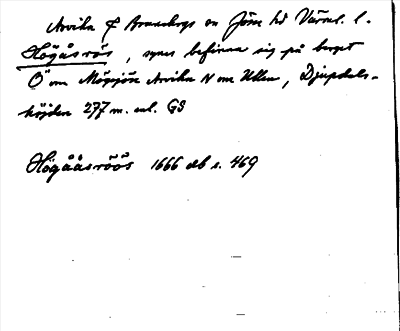 Arvika f Brunskogs sn Jösse hd Värml. l.
Högåsrös, synes befinna sig på berget
Ö om Mögsjön Arvika N om Ullen, Djupdals-
höjden 277 m. enl. GS
Högååsröös 1666 db s. 469